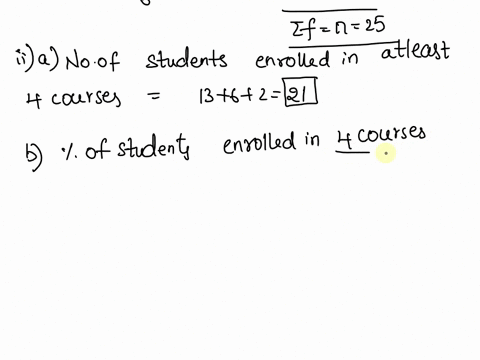 Σf = n = 25
ii) a) No. of students enrolled in atleast
4 courses = 13+6+2 = 21
b) % of students enrolled in 4 courses